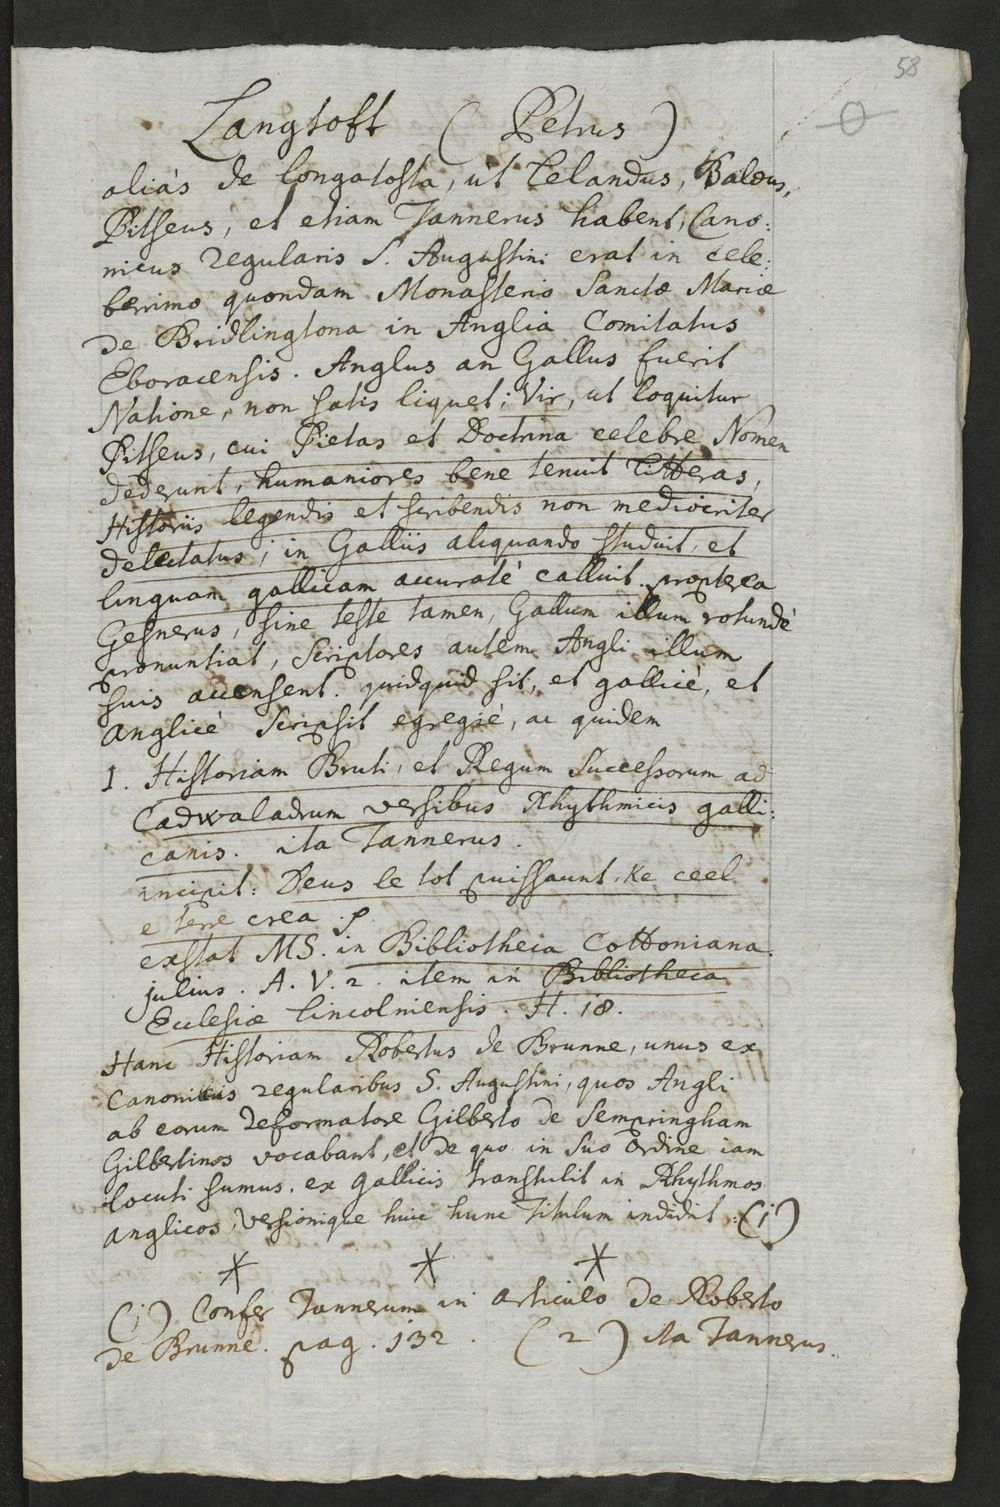 58
Langtoft (Petrus)
aliàs de longatosta, ut Lelandus, Balæus,
Pitseus, et etiam Tannerus habent, Cano:
nicus regularis S. Augustini erat in cele:
berrimo quondam Monasterio Sanctæ Mariæ
de Bridlingtona in Anglia Comitatus
Eboracensis. Anglus an Gallus fuerit
Natione, non satis liquet; Vir, ut loquitur
Pitseus, cui Pietas et Doctrina celebre Nomen
dederunt, humaniores bene tenuit Litteras,
Historiis legendis et scribendis non mediocriter
delectatus; in Galliis aliquando studuit, et
linguam gallicam accuratè calluit. propterea
Gesnerus, sine teste tamen, Gallum illum rotundè
pronuntiat, Scriptores autem Angli illum
suis accensent. quidquid sit, et gallicè, et
anglicè scripsit egregiè, ac quidem
1. Historiam Bruti, et Regum Successorum ad
Cadwaladrum versibus Rhythmicis galli:
canis. ita Tannerus.
incipit: Deus le tot puissaunt, Ke ceel
e terre crea.
exstat MS. in Bibliotheca Cottoniana.
julius. A. V. 2. item in Bibliotheca
Ecclesiæ lincolniensis. H. 18.
Hanc Historiam Robertus de Brunne, unus ex
Canonicis regularibus S. Augustini, quos Angli
ab eorum reformatore Gilberto de Sempringham
Gilbertinos vocabant, et de quo in suo Ordine iam
locuti sumus, ex gallicis transtulit in Rhythmos
anglicos, versionique huic hunc Titulum indidit: (1)
* * *
(1) Confer Tannerum in articulo de Roberto
de Brunne. pag. 132. (2) ita Tannerus.